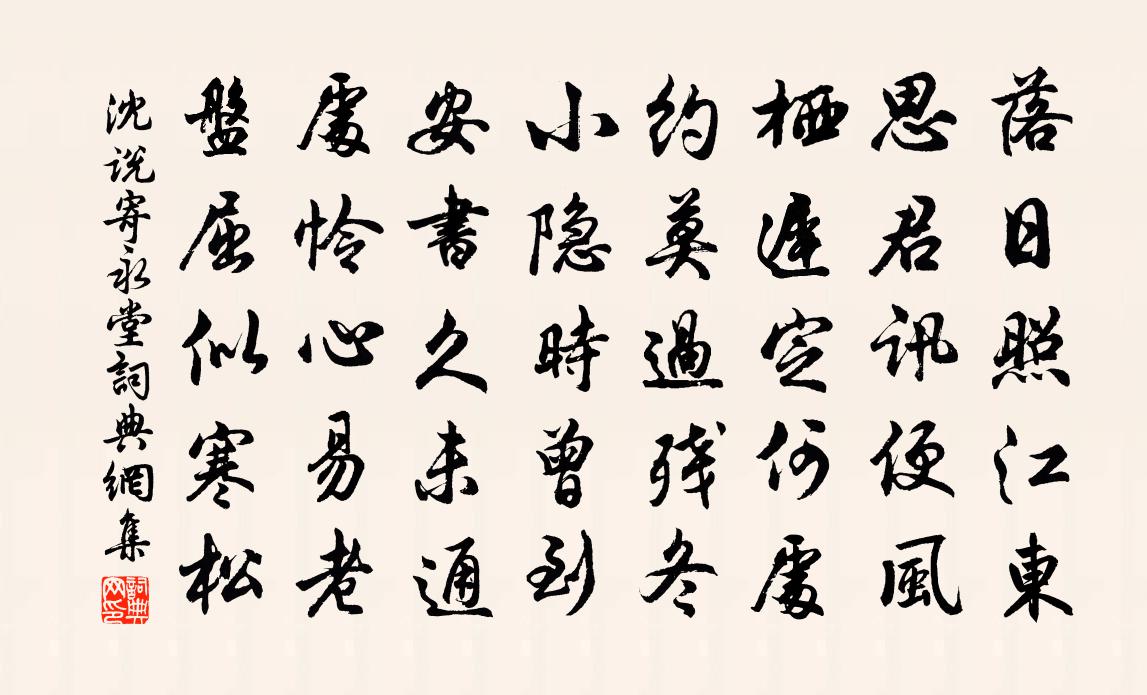 落日照江東
思君訊便風
栖遲定何處
約莫過殘冬
小隐時曾到
安書久未通
處怜心易老
盤屈似寒松
沈说寄永堂詞典網集
詞典網印